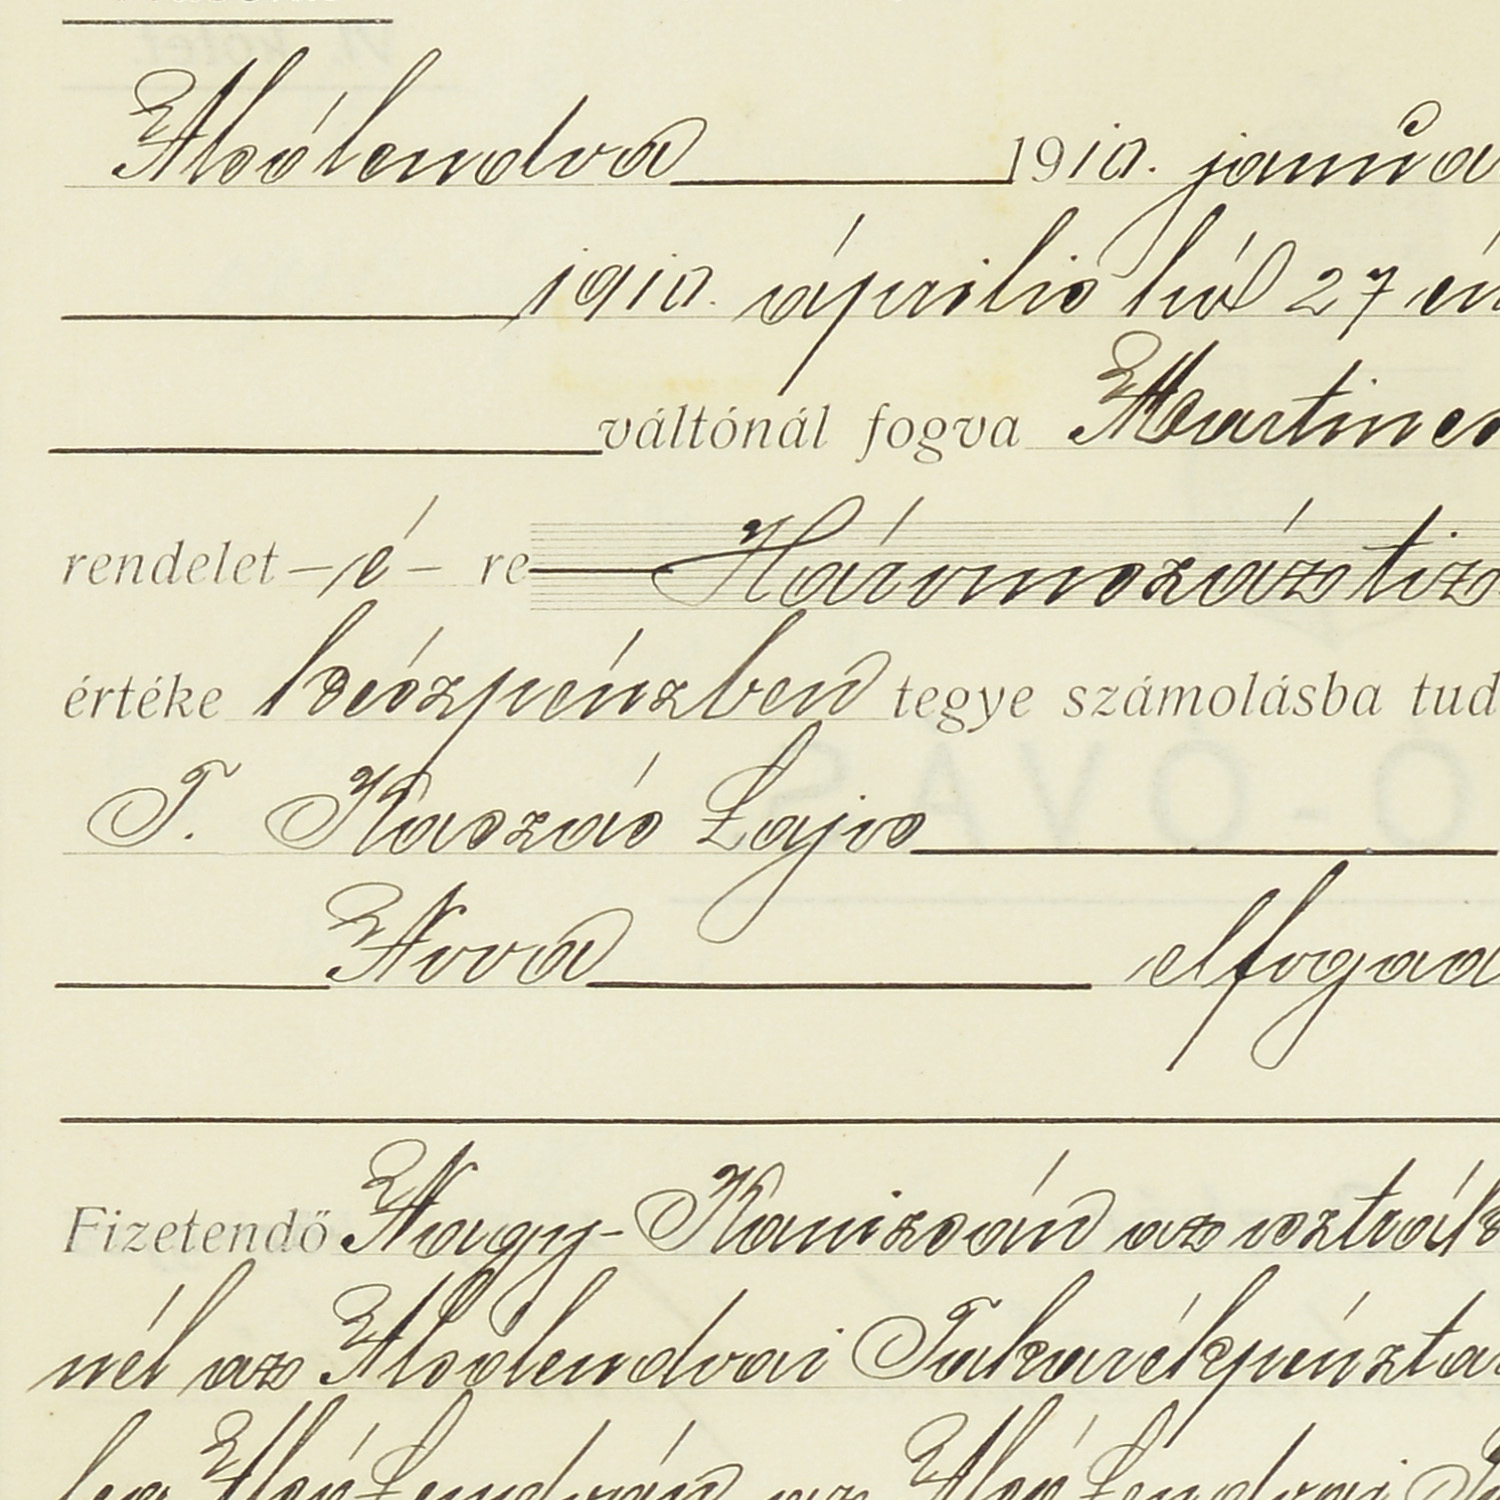 Alsólendva 1910. janua
1910. április hó 27 én
váltónál fogva Martines
rendelet – é – re Háromszáztiz
értéke készpénzben tegye számolásba tud
T. Kaszás Lajos
Nova elfogad
Fizetendő Nagy-Kanizsán az osztrák
nél az Alsólendvai Takarékpénzta
leg Alsó Lendván az Alsó Lendvai